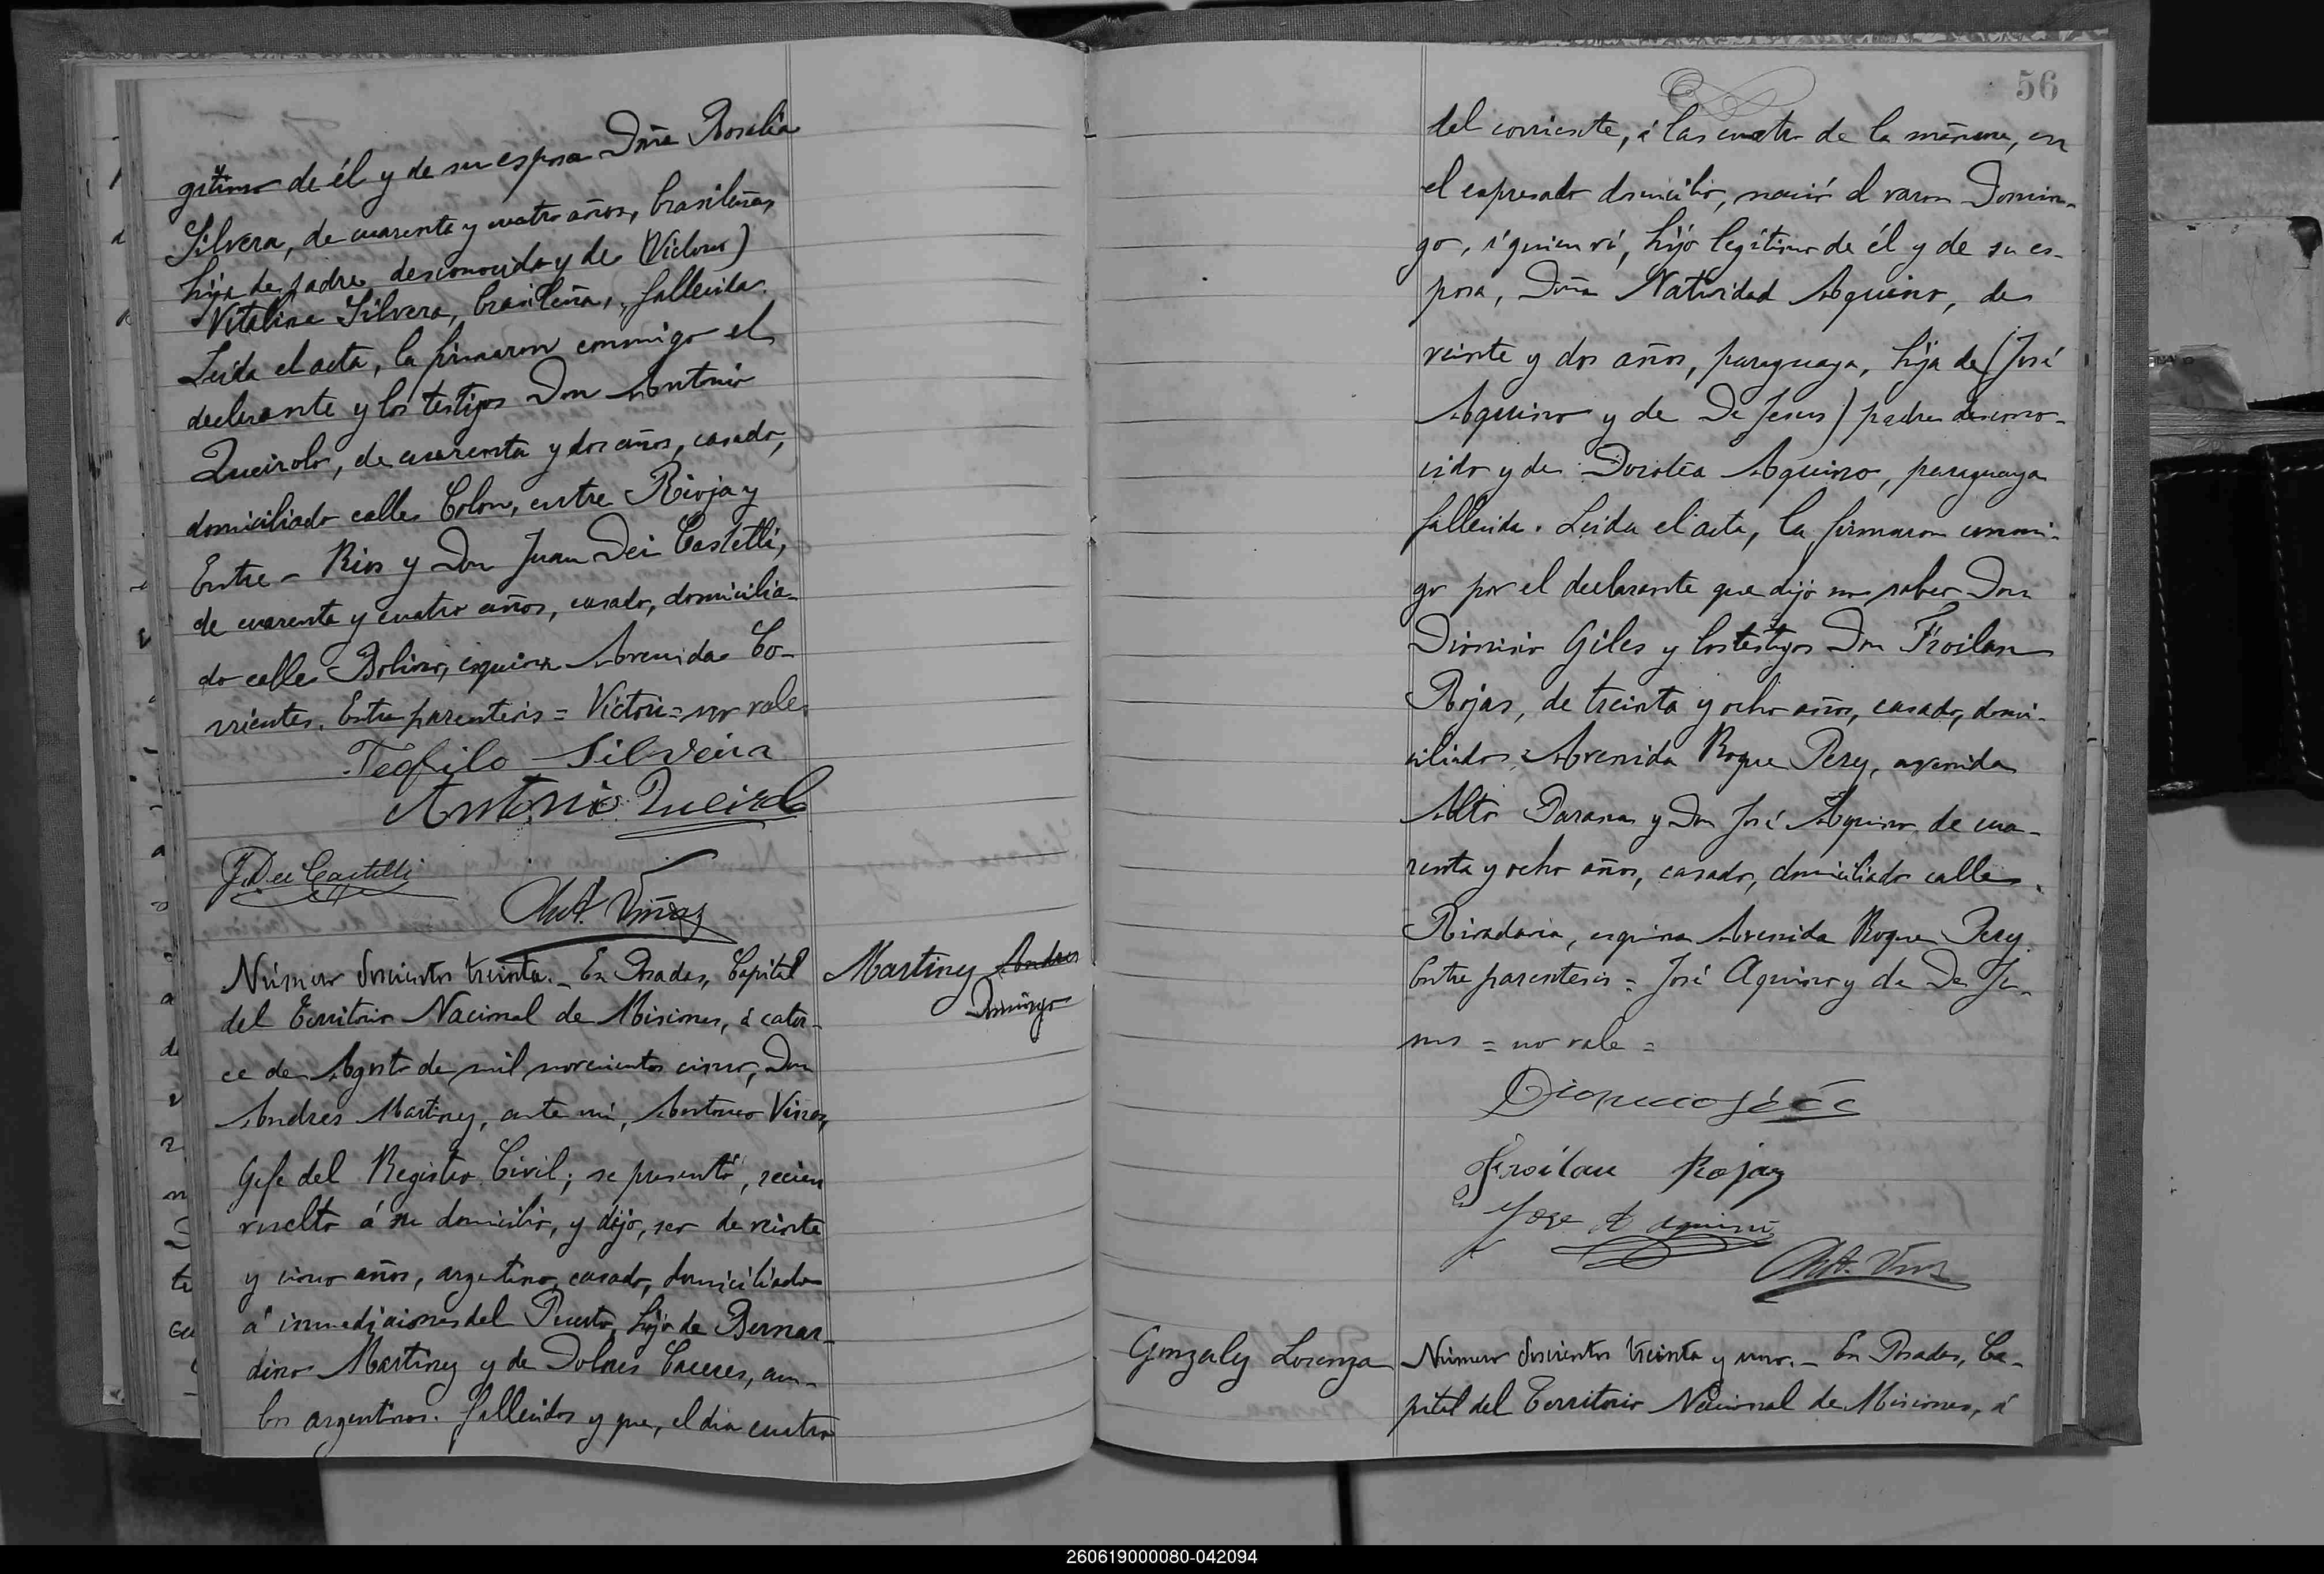 gitimo de él y de su esposa Doña Rosalia
Silvera, de cuarenta y cuatro años, brasileña,
hija de padre desconocido y de (Victour)
Vitalina Silvera, brasileña, fallecida.
Leida el acta, la firmaron conmigo el
declarante y los testigos Don Antonio
Queirolo, de cuarenta y dos años, casado,
domiciliado calle Colon, entre Rioja y
Entre - Rios y Don Juan Dei Castelli,
de cuarenta y cuatro años, casado, domicilia-
do calle Bolivar, esquina Avenida Co-
rrientes. Entre parentesis = Victou = no vale.
Teofilo Silveira
Antonio Queirolo
J. Dei Castelli
Ant. Viñas
Martinez Andres
Domingo
Número doscientos treinta. _ En Posadas, Capital
del Territorio Nacional de Misiones, á cator-
ce de Agosto de mil novecientos cinco, Don
Andres Martinez, ante mi, Antonio Viñas,
Gefe del Registro Civil; se presentó, recien
vuelto á su domicilio, y dijo, ser de veinte
y cinco años, argentino, casado, domiciliado
á inmediaciones del Puerto, hijo de Bernar-
dino Martinez y de Dolores Caceres, am-
bos argentinos. fallecidos y que, el dia cuatro
56
del corriente, á las cuatro de la mañana, en
el expresado domicilio, nació el varon Domin-
go, á quien ví, hijo legítimo de él y de su es-
posa, Doña Natividad Aquino, de
veinte y dos años, paraguaya, hija de (José
Aquino y de De Jesus) padre descono-
cido y de Dorotéa Aquino, paraguaya
fallecida. Leida el acta, la firmaron conmi-
go por el declarante que dijo no saber Don
Dionisio Giles y los testigos Don Froilan
Rojas, de treinta y ocho años, casado, domi-
ciliado Avenida Roque Perez, avenida
Alto Parana y Don José Aquino de cua-
renta y ocho años, casado, domiciliado calle
Rivadavia, esquina Avenida Roque Perez.
Entre parentesis = José Aquino y de De Je-
sus = no vale =
Froilan Rojas
Jose A aquino
Ant. Viñas
Gonzalez Lorenza
Número doscientos treinta y uno. _ En Posadas, Ca-
pital del Territorio Nacional de Misiones, á
260619000080-042094